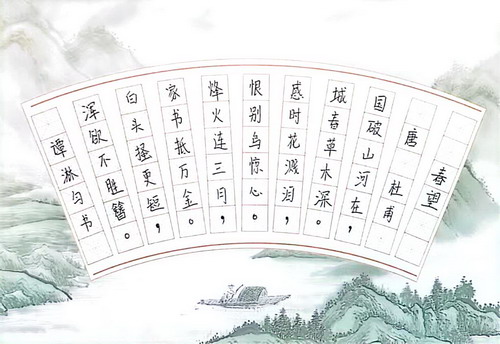 春望
唐 杜甫
国破山河在，
城春草木深。
感时花溅泪，
恨别鸟惊心。
烽火连三月，
家书抵万金。
白头搔更短，
浑欲不胜簪。
谭淋匀书